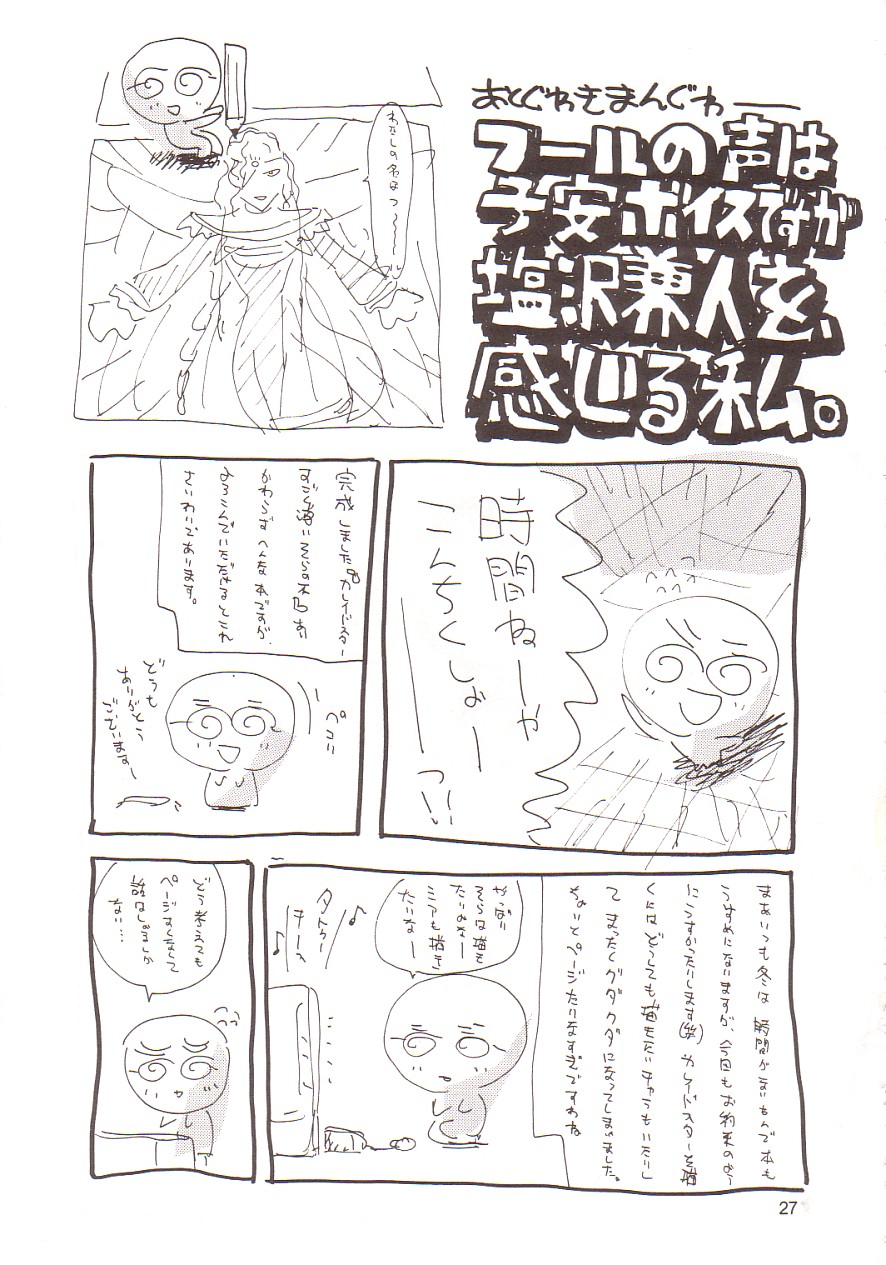 あとぐわきまんぐわ──
フールの声は
子安ボイスですが
塩沢兼人を、
感じる私。
わたしの名はっ〜〜〜
時間ねーや
こんちくしょーっ!!
完成しました『カレイドスター
すごく薄いそらの本』
かわらずへんな本ですが、
よろこんでいただけるとこれ
さいわいであります。
ペコリ
どうも
ありがとう
ございますー
まあいつも冬は時間がないもんで本も
うすめになりますが、今回もお約束のよう
にうすかったりします(笑)カレイドスターを描
くにはどうしても描きたいキャラもいたりし
てまったくグダグダになってしまいました。
ちょいとページたりなすぎですわね
やっぱり
そらは描き
たいなー
ミアも描き
たいなー
♪
♪
どう考えても
ページすくなくて
話はしょるしか
ない…
27